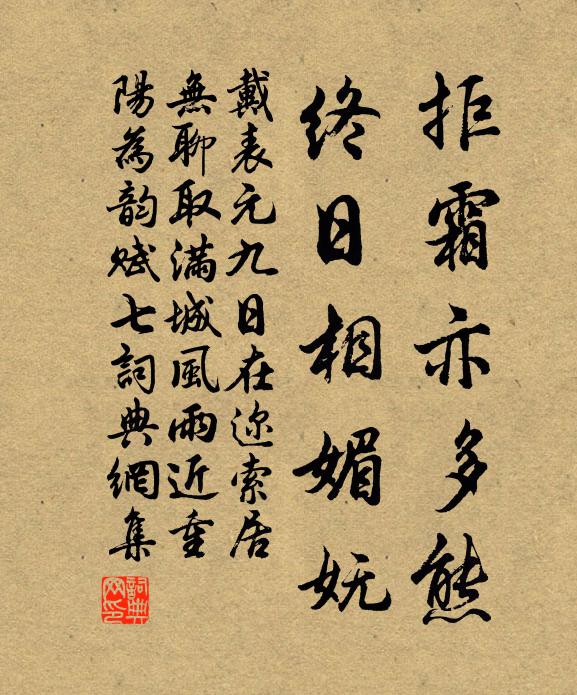 拒霜亦多態
終日相媚妩
戴表元九日在迩索居
無聊取滿城風雨近重
陽為韵賦七詞典網集
詞典
网印